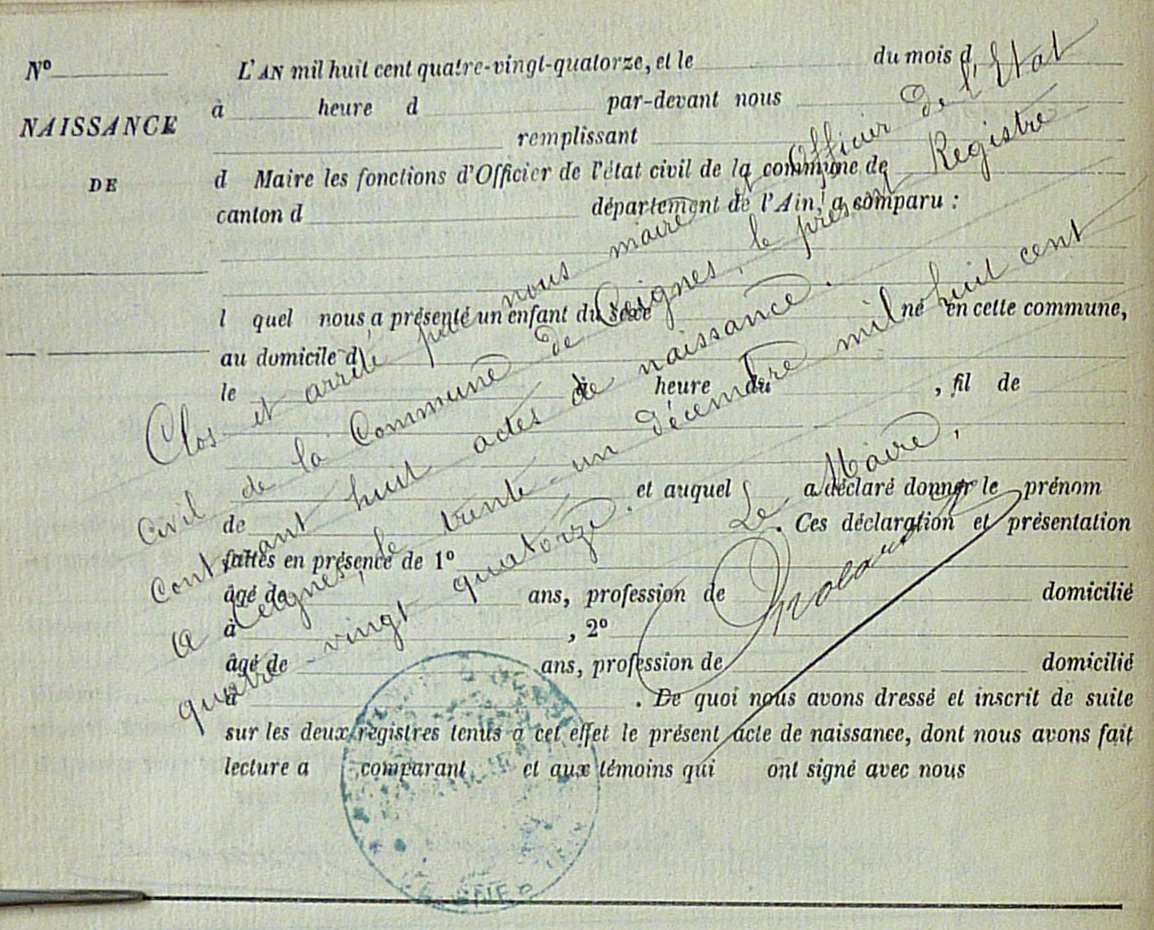 N°
NAISSANCE
DE
L'AN mil huit cent quatre-vingt-quatorze, et le du mois d
à heure d par-devant nous
remplissant
d Maire les fonctions d'Officier de l'état civil de la commune de
canton d département de l'Ain, a comparu :
l quel nous a présenté un enfant du sexe né en cette commune,
au domicile d
le à heure du , fil de
et auquel a déclaré donner le prénom
de . Ces déclaration et présentation
faites en présence de 1°
âgé de ans, profession de domicilié
à , 2°
âgé de ans, profession de domicilié
à . De quoi nous avons dressé et inscrit de suite
sur les deux registres tenus à cet effet le présent acte de naissance, dont nous avons fait
lecture a comparant et aux témoins qui ont signé avec nous
Clos et arrêté par nous maire et officier de l'Etat
Civil de la Commune de Ceignes, le présent Registre
contenant huit actes de naissance.
A Ceignes, le trente-un décembre mil huit cent
quatre vingt quatorze.
Le Maire,